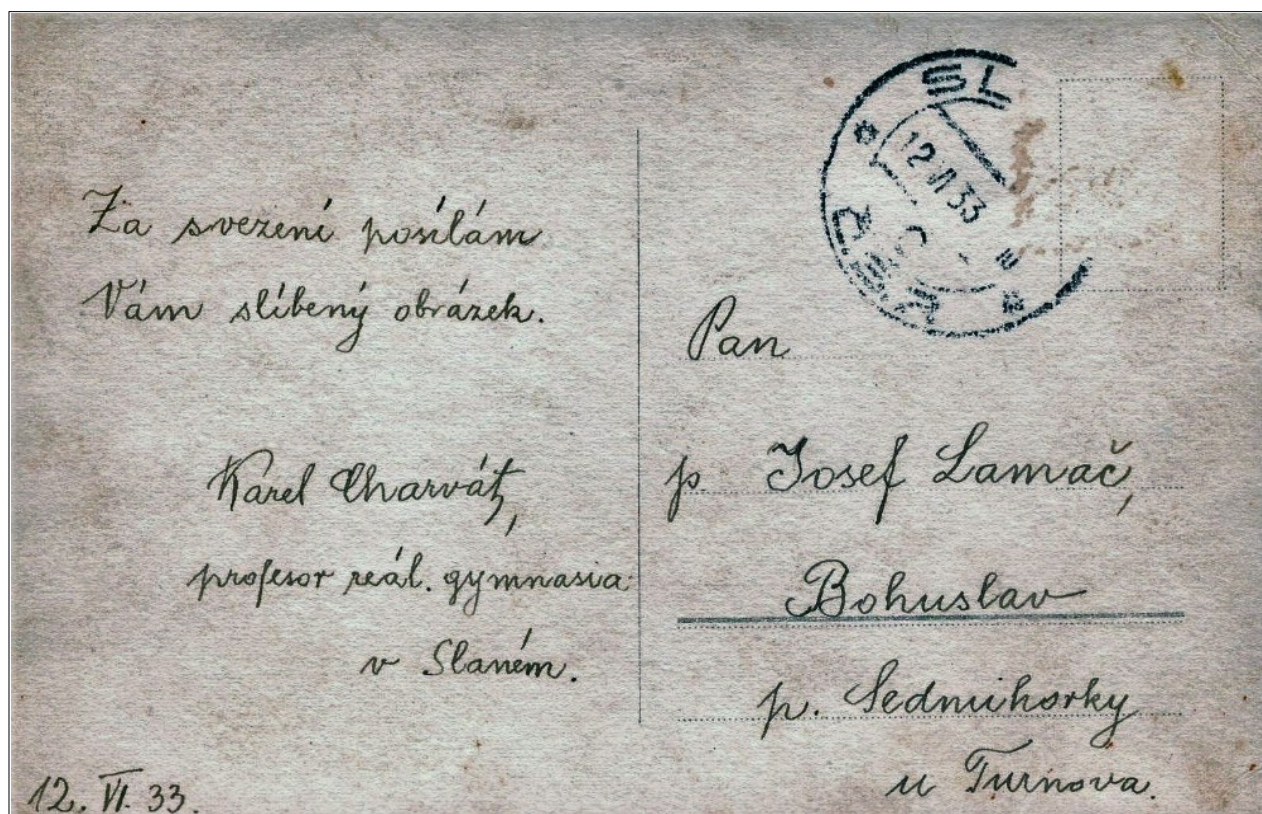 Za svezení posílám
Vám slíbený obrázek.
Karel Charvát,
profesor reál. gymnasia
v Slaném.
12. VI. 33.
SL
12 VI 33
ČSR
Pan
p. Josef Lamač,
Bohuslav
p. Sedmihorky
u Turnova.